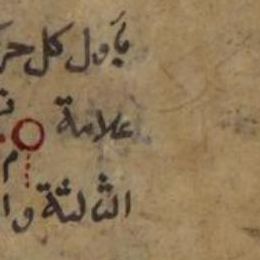 باول كل حر
علامة
م
الثالثة وا